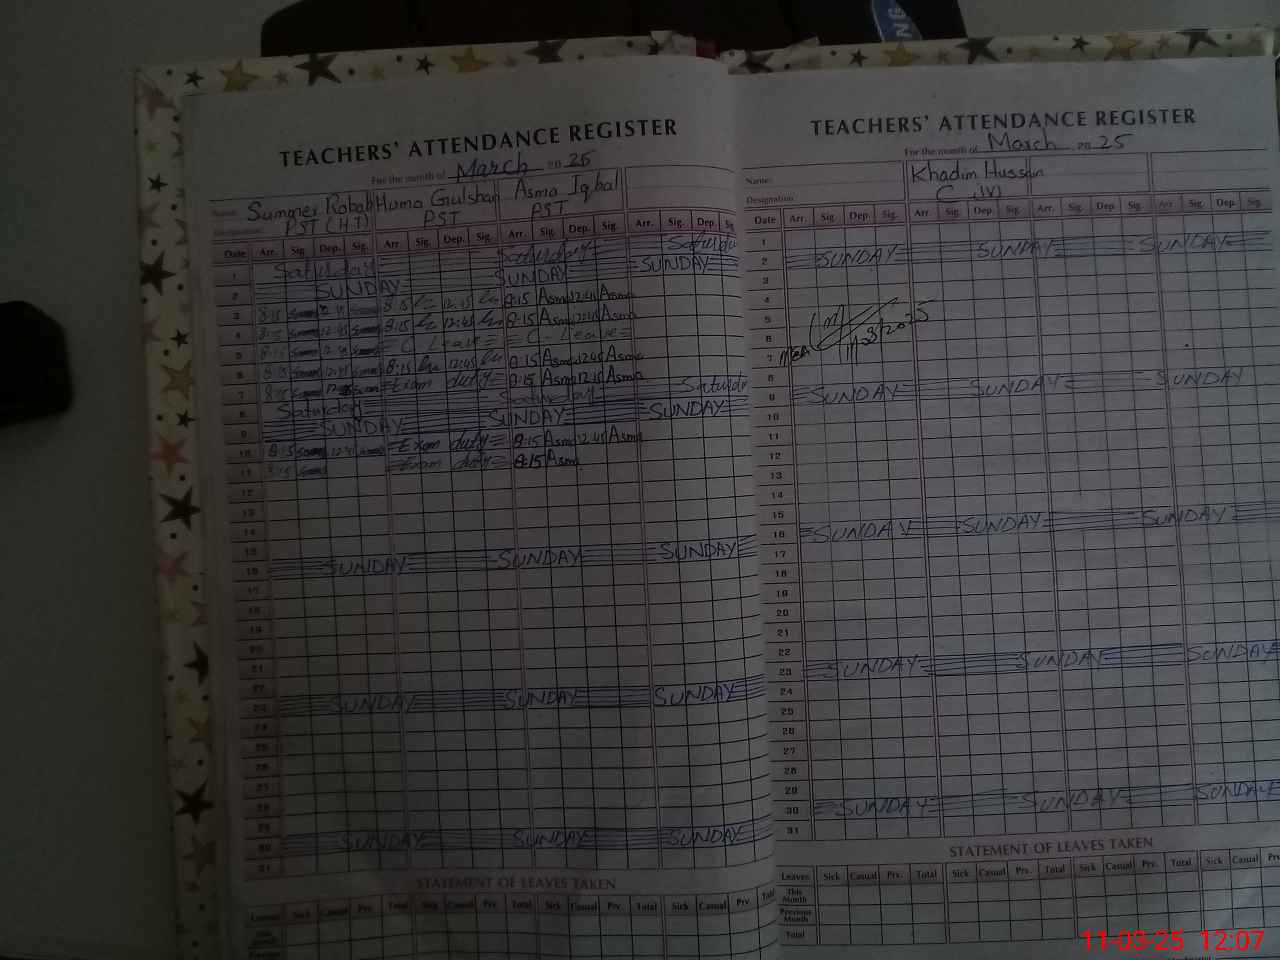 TEACHERS' ATTENDANCE REGISTER
For the month of March 20 25
Name: Summer Rabab Huma Gulshan Asma Iqbal
Designation: PST (HT) PST PST
Date Arr. Sig. Dep. Sig. Arr. Sig. Dep. Sig. Arr. Sig. Dep. Sig. Arr. Sig. Dep. Sig.
1 Saturday Saturday
2 SUNDAY SUNDAY SUNDAY
3 8:15 8:15 12:45 8:15 Asma 12:45 Asma
4 8:15 12:45 8:15 12:45 8:15 Asma 12:45 Asma
5 8:15 C Leave C. Leave
6 8:15 12:45 8:15 12:45 8:15 Asma 12:45 Asma
7 8:15 Exam duty 8:15 Asma 12:15 Asma
8 Saturday Saturday
9 SUNDAY SUNDAY SUNDAY
10 8:15 12:45 Exam duty 8:15 Asma 12:45 Asma
11 8:15 Exam duty 8:15 Asma
12
13
14
15
16 SUNDAY SUNDAY SUNDAY
17
18
19
20
21
22
23 SUNDAY SUNDAY SUNDAY
24
25
26
27
28
29
30 SUNDAY SUNDAY SUNDAY
31
STATEMENT OF LEAVES TAKEN
Leaves Sick Casual Prv. Total Sick Casual Prv. Total Sick Casual Prv. Total Sick Casual Prv.
This
Month
Previous
TEACHERS' ATTENDANCE REGISTER
For the month of March 20 25
Name: Khadim Hussain
Designation C IV
Date Arr. Sig. Dep. Sig. Arr. Sig. Dep. Sig. Arr. Sig. Dep. Sig. Arr. Sig. Dep. Sig.
1
2 SUNDAY SUNDAY SUNDAY
3
4
5
6
7 MEA 11-03/2025
8
9 SUNDAY SUNDAY SUNDAY
10
11
12
13
14
15
16 SUNDAY SUNDAY SUNDAY
17
18
19
20
21
22
23 SUNDAY SUNDAY SUNDAY
24
25
26
27
28
29
30 SUNDAY SUNDAY SUNDAY
31
STATEMENT OF LEAVES TAKEN
Leaves Sick Casual Prv. Total Sick Casual Prv. Total Sick Casual Prv. Total Sick Casual
This
Month
Previous
Month
Total
11-03-25 12:07